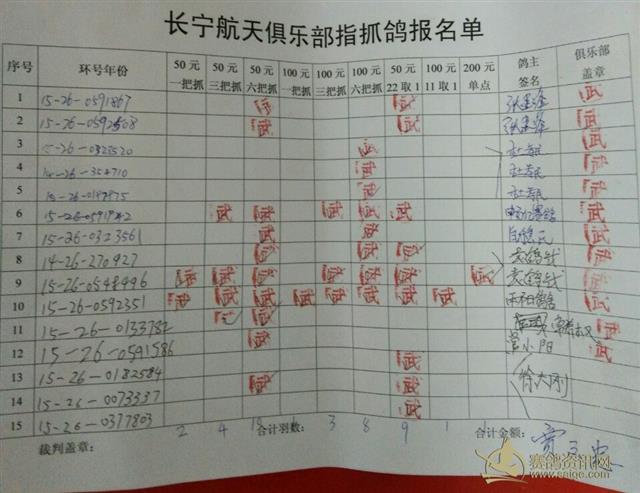 长宁航天俱乐部指抓鸽报名单
序号 环号年份 50元一把抓 50元三把抓 50元六把抓 100元一把抓 100元三把抓 100元六把抓 50元22取1 100元11取1 200元单点 鸽主签名 俱乐部盖章
1 15-26-0591867 武 武 武
2 15-26-0592508 武 武 武
3 15-26-0323520 武 武
4 14-26-354710 武 武
5 武 武
6 15-26-0591942 武 武 武 武 武 武
7 15-26-0323561 武 武 武
8 14-26-270927 武 武 武 袁鸽针 武
9 15-26-0548496 武 武 武 武 武 武 武 袁鸽针 武
10 15-26-0592351 武 武 武 武 武 武 武 武 武
11 15-26-0133782 武 武 武
12 15-26-0591586 武 管小阳 武
13 15-26-0182584 武
14 15-26-0073337 武 武 徐大刚
15 15-26-0377803 武
裁判盖章: 合计羽数: 2 4 3 8 9 1 合计金额:
赛鸽资讯网
www.saige.com